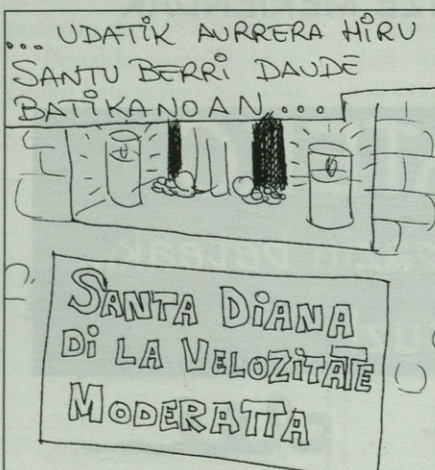 ... UDATIK AURRERA HIRU
SANTU BERRI DAUDE
BATIKANOAN...
SANTA DIANA
DI LA VELOZITATE
MODERATTA